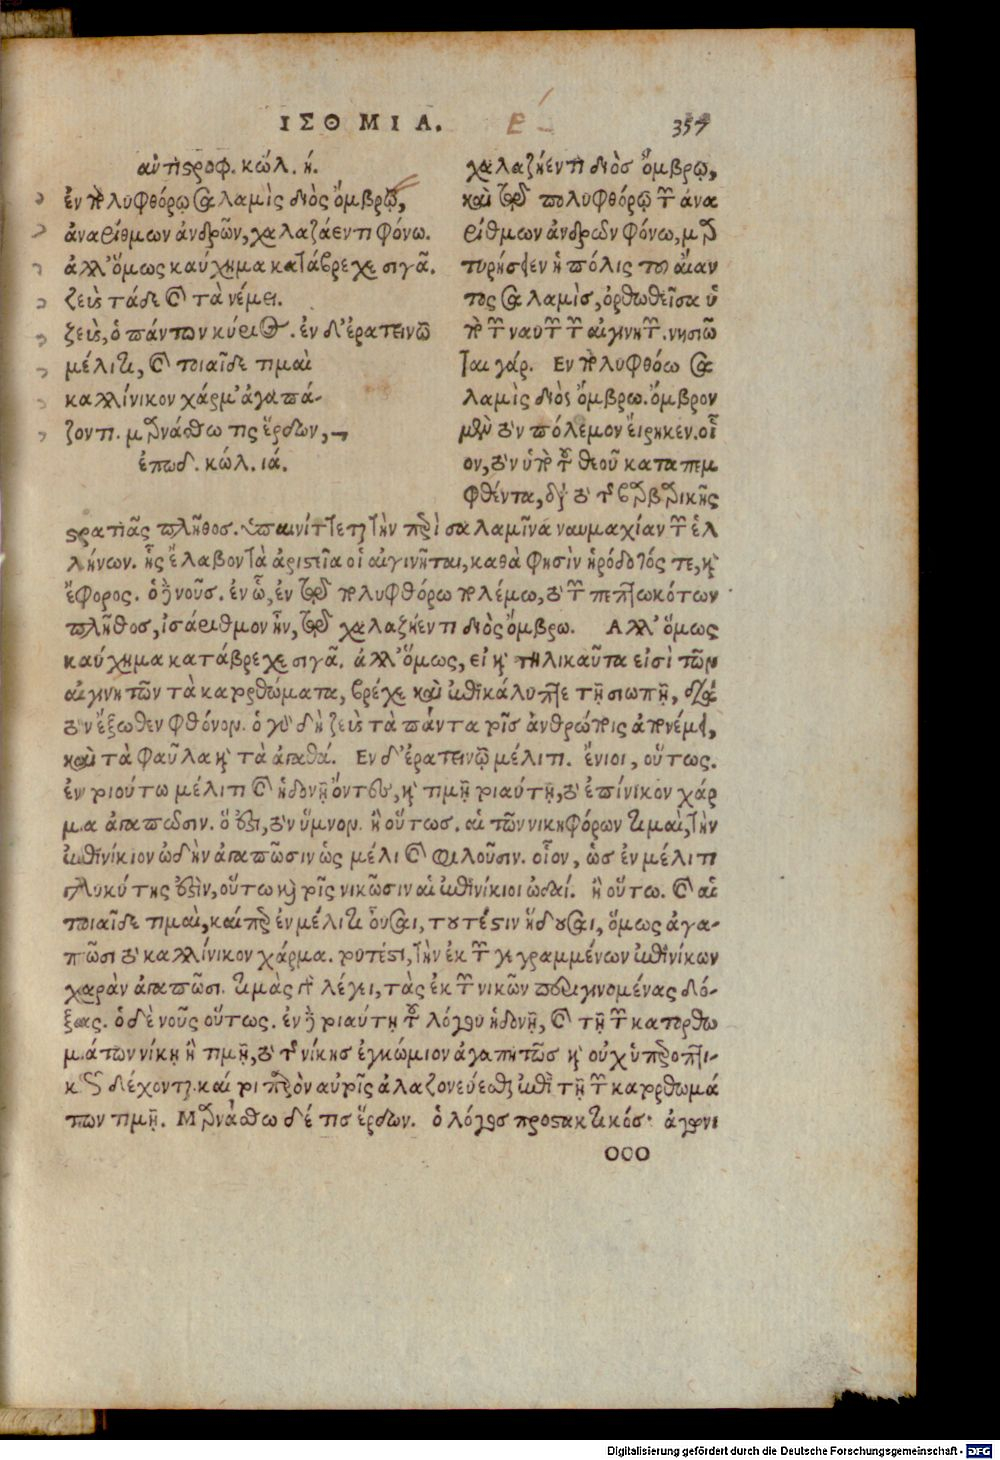 ΙΣΘΜΙΑ. Ε 357
αντιστροφ. κώλ. ή.
ἐν πολυφθόρῳ Σαλαμὶς διὸς ὄμβρῳ,
ἀναρίθμων ἀνδρῶν, χαλαζάεντι φόνω.
ἀλλ' ὅμως καύχημα κατάβρεχε σιγᾶ.
ζεὺς τάδε καὶ τὰ νέμει.
ζεὺς, ὁ πάντων κύριος. ἐν δ' ἐρατεινῶ
μέλιτι, καὶ τοιαῖδε τιμαὶ
καλλίνικον χάρμ' ἀγαπά-
ζοντι. μαρνάσθω τις ἕρδων,
ἐπωδ. κώλ. ιά.
χαλαζήεντι διὸς ὄμβρῳ,
καὶ τῷ πολυφθόρῳ τῶν ἀνα
ρίθμων ἀνδρῶν φόνω, μαρ
τυρήσειεν ἡ πόλις τοῦ αἴαν
τος Σαλαμὶς, ὀρθωθεῖσα ὑ
πὸ τῶν ναυτῶν τῶν αἰγινητῶν. νησιῶ
ται γάρ. Εν πολυφθόρω Σα
λαμὶς διὸς ὄμβρω. ὄμβρον
μὲν τὸν πόλεμον εἴρηκεν. οἷ
ον, τὸν ὑπὸ τοῦ θεοῦ καταπεμ
φθέντα, διὰ τὸ τῆς βαρβαρικῆς
στρατιᾶς πλῆθος. ὑπαινίττεται τὴν περὶ σαλαμῖνα ναυμαχίαν τῶν ἑλ
λήνων. ἧς ἔλαβον τὰ ἀριστεῖα οἱ αἰγινῆται, καθὰ φησὶν ἡρόδοτός τε, καὶ
ἔφορος. ὁ δὲ νοῦς. ἐν ᾧ, ἐν τῷ πολυφθόρω πολέμω, τὸ τῶν πεπτωκότων
πλῆθος, ἰσάριθμον ἦν, τῷ χαλαζήεντι διὸς ὄμβρω. Αλλ' ὅμως
καύχημα κατάβρεχε σιγᾶ. ἀλλ' ὅμως, εἰ καὶ τηλικαῦτα εἰσὶ τῶν
αἰγινητῶν τὰ κατορθώματα, βρέχε καὶ ἐπικάλυπτε τῇ σιωπῇ, διὰ
τὸν ἔξωθεν φθόνον. ὁ γὰρ δὴ ζεὺς τὰ πάντα τοῖς ἀνθρώποις ἀπονέμει,
καὶ τὰ φαῦλα καὶ τὰ ἀγαθά. Εν δ' ἐρατεινῷ μέλιτι. ἔνιοι, οὕτως.
ἐν τοιούτω μέλιτι καὶ ἡδονῇ ὄντες, καὶ τιμῇ τοιαύτῃ, τὸ ἐπίνικον χάρ
μα ἀγαπῶσιν. ὅ ἐστι, τὸν ὕμνον. ἢ οὕτως. αἱ τῶν νικηφόρων τιμαὶ, τὴν
ἐπινίκιον ὠδὴν ἀγαπῶσιν ὡς μέλι καὶ φιλοῦσιν. οἷον, ὡς ἐν μέλιτι
γλυκύτης ἐστὶν, οὕτω καὶ τοῖς νικῶσιν αἱ ἐπινίκιοι ὠδαί. ἢ οὕτω. καὶ αἱ
τοιαῖδε τιμαὶ, καίπερ ἐν μέλιτι οὖσαι, τουτέστιν ἡδοῦσαι, ὅμως ἀγα-
πῶσι τὸ καλλίνικον χάρμα. τουτέστι, τὴν ἐκ τῶν γεγραμμένων ἐπινίκων
χαρὰν ἀγαπῶσι. τιμὰς δὲ λέγει, τὰς ἐκ τῶν νικῶν περιγινομένας δό-
ξας. ὁ δὲ νοῦς οὕτως. ἐν δὲ τοιαύτῃ τοῦ λόγου ἡδονῇ, καὶ τῇ τῶν κατορθω
μάτων νίκῃ ἢ τιμῇ, τὸ τῆς νίκης ἐγκώμιον ἀγαπητῶς καὶ οὐχ ὑπεροπτι-
κῶς δέχονται. καίτοι παρὸν αὐτοῖς ἀλαζονεύεσθαι ἐπὶ τῇ τῶν κατορθωμά
των τιμῇ. Μαρνάσθω δέ τις ἕρδων. ὁ λόγος προστακτικός· ἀγωνι
ooo
Digitalisierung gefördert durch die Deutsche Forschungsgemeinschaft - DFG